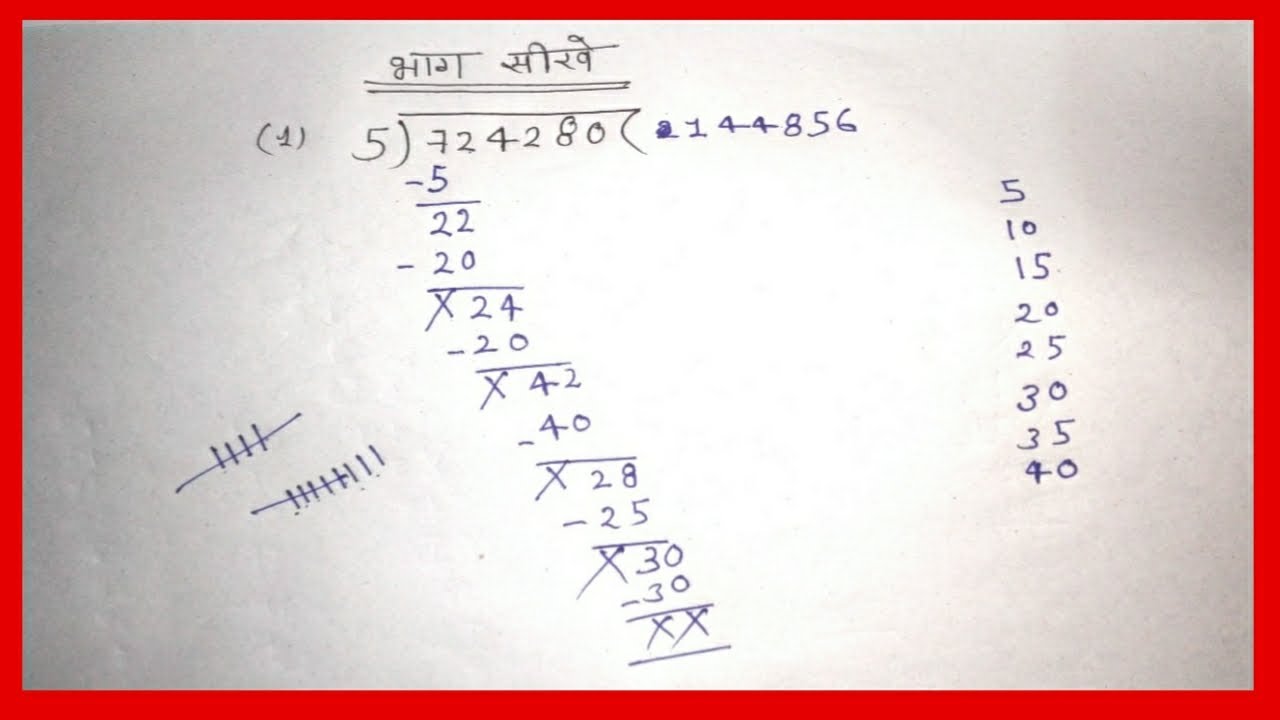 भाग सीखे
(1) 5)724280( 144856
-5
22
-20
X 24
-20
X 42
-40
X 28
-25
X 30
-30
XX
5
10
15
20
25
30
35
40